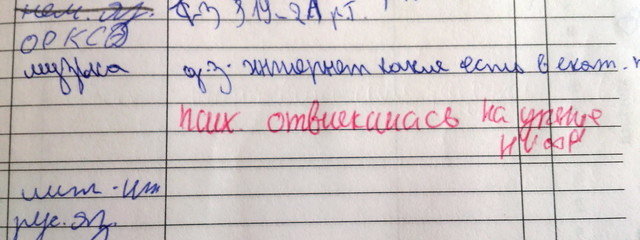 нем. яз. д-з з 19-21 рт.
ОРКСЭ
музыка д.з. интернет какие есть в екат.
псих отвлекалась на уроке
лит. чт
рус. яз.